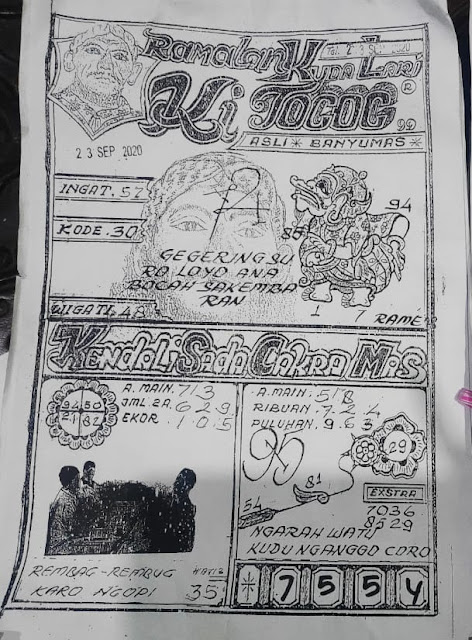 Ramalan Kuda Lari
Tgl. 23 SEP 2020
Ki TOGOG ®
ASLI * BANYUMAS *
23 SEP 2020
INGAT. 57
KODE. 30
WIGATI. 48
94
85
GEGERING SU
RO LOYO ANA
BOCAH SAKEMBA
RAN
1 7 RAME
KENDALI SADA CAKRA MAS
A. MAIN. 7/3
JML 2A. 6 2 9
EKOR. 1 0 5
94 50
21 82
REMBAG-REMBUG
KARO NGOPI
35
A. MAIN. 5/8
RIBUAN. 7 2 4
PULUHAN. 9 6 3
29
81
54
EXSTRA
7036
8529
NGARAH WATU
KUDU NGANGGO CORO
* 7 5 5 4